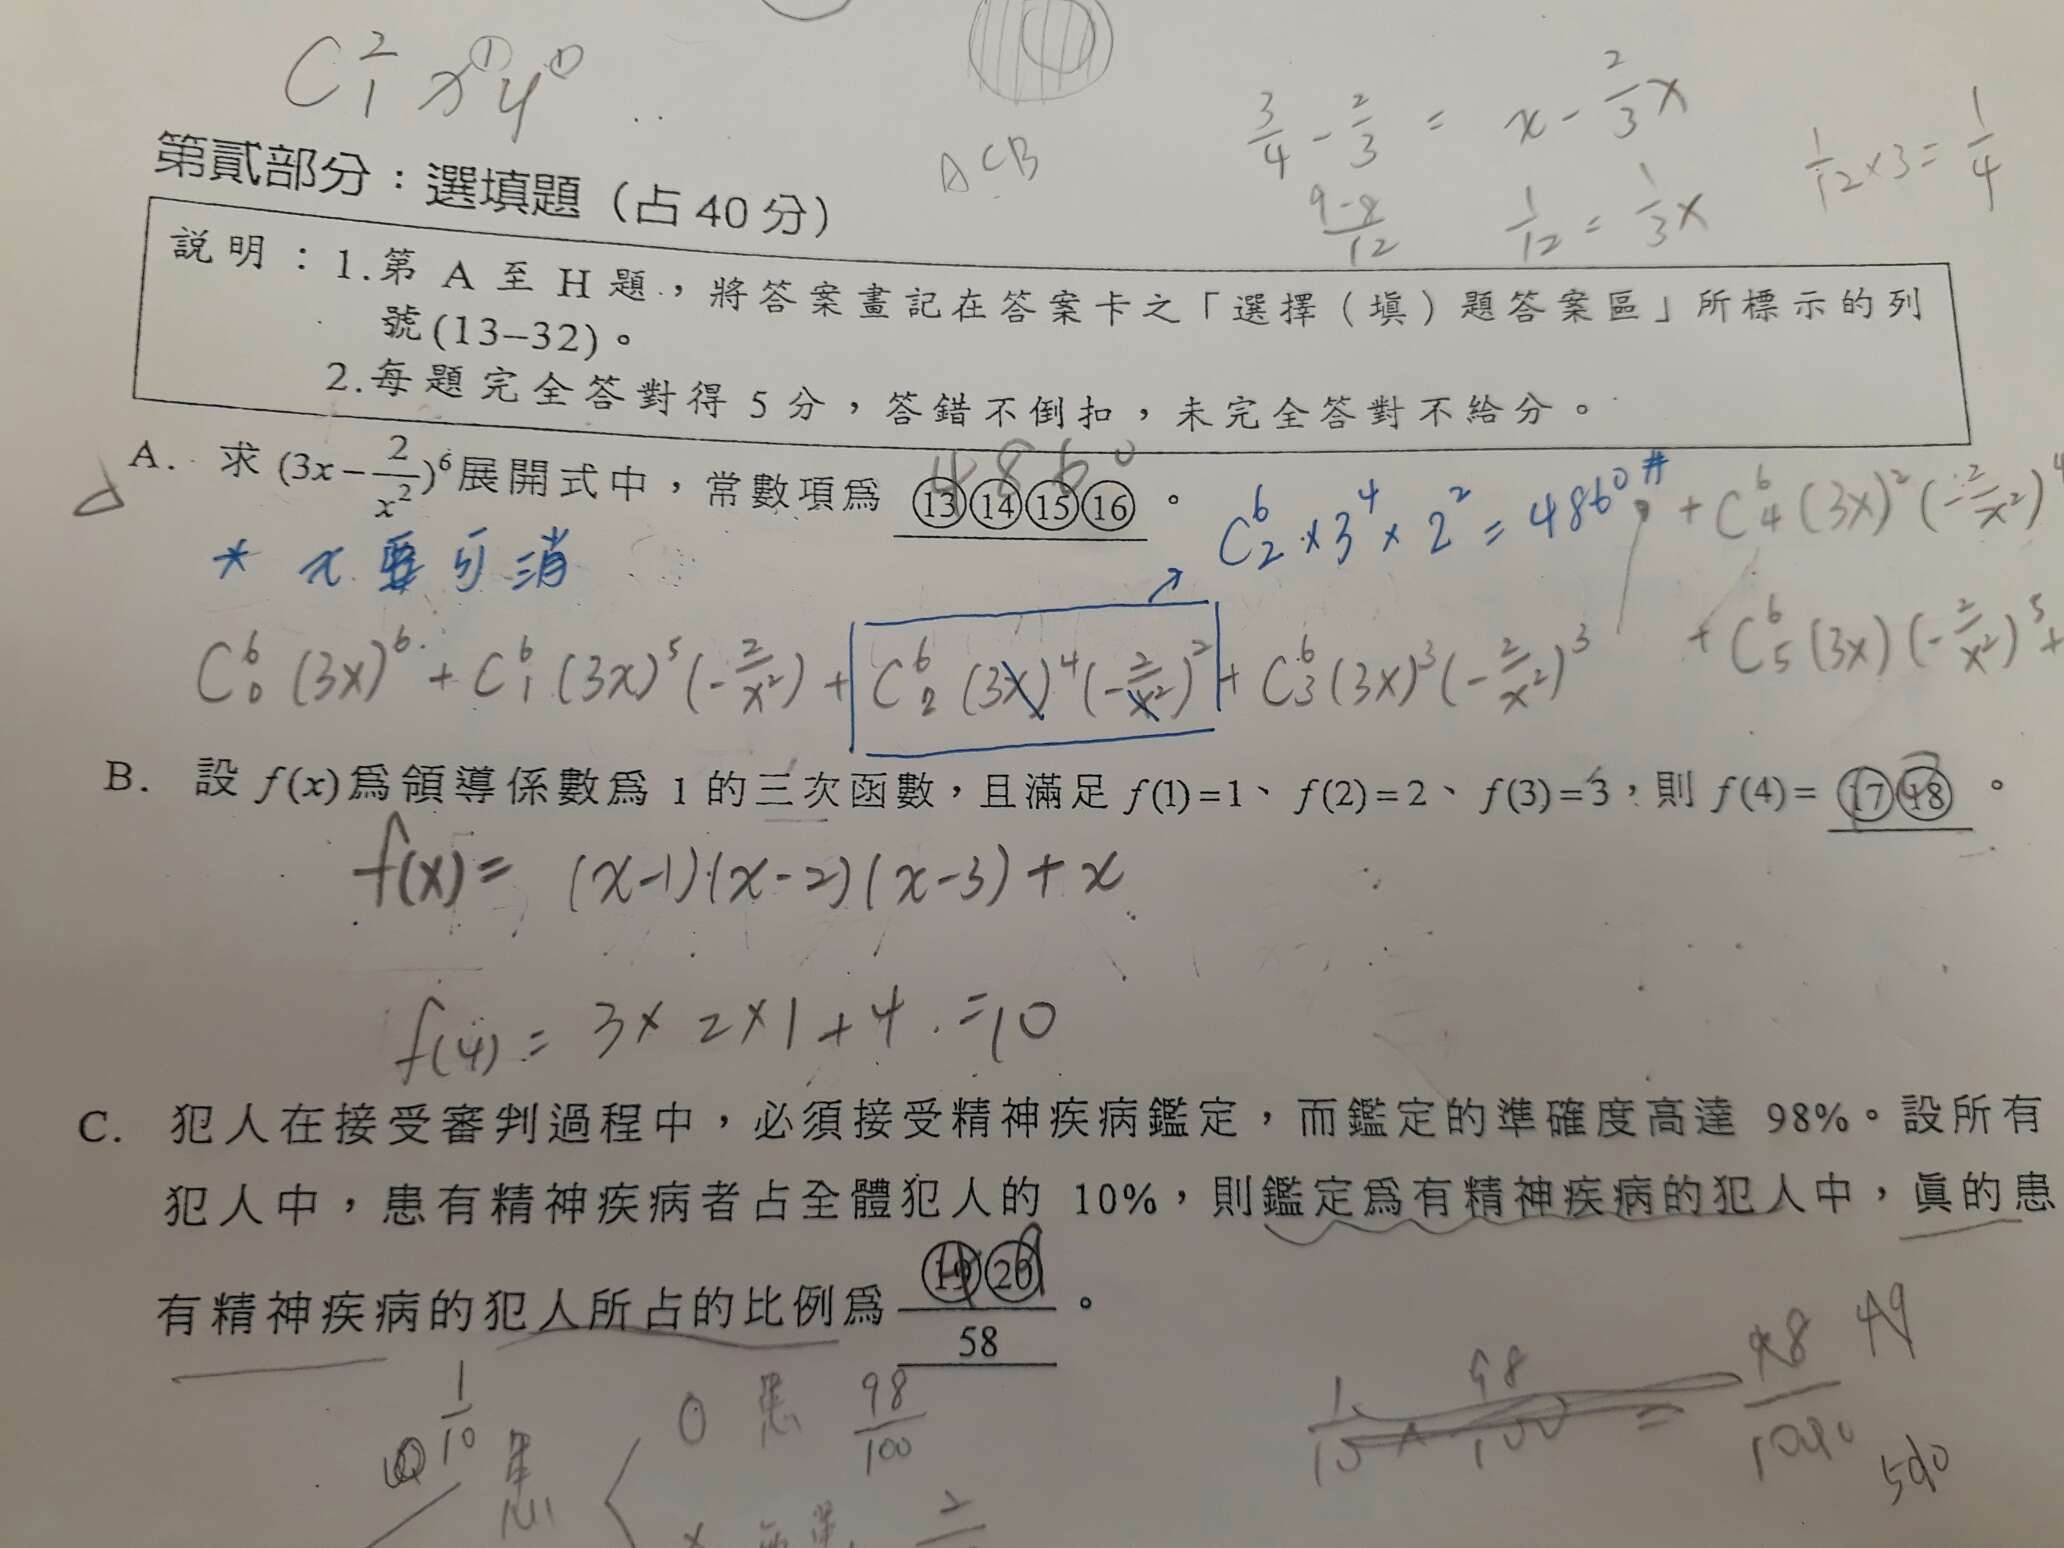 C²₁ x①y①
ACB
3/4 - 2/3 = x - 2/3x
9-8/12
1/12 = 1/3x
1/12 × 3 = 1/4
第貳部分：選填題（占 40 分）
說明：1.第 A 至 H 題，將答案畫記在答案卡之「選擇（填）題答案區」所標示的列
號(13–32)。
2.每題完全答對得 5 分，答錯不倒扣，未完全答對不給分。
4 8 6 0
A. 求 (3x - 2/x²)⁶展開式中，常數項爲 ⑬⑭⑮⑯ 。
C⁶₂ × 3⁴ × 2² = 4860#
+ C⁶₄ (3x)² (-2/x²)⁴
* x 要可消
C⁶₀ (3x)⁶ + C⁶₁ (3x)⁵ (-2/x²) + C⁶₂ (3x)⁴ (-2/x²)² + C⁶₃ (3x)³ (-2/x²)³
+ C⁶₅ (3x) (-2/x²)⁵ +
B. 設 f(x)爲領導係數爲 1 的三次函數，且滿足 f(1)=1、f(2)=2、f(3)=3，則 f(4)= ⑰⑱ 。
f(x) = (x-1)(x-2)(x-3) + x
f(4) = 3 × 2 × 1 + 4 = 10
C. 犯人在接受審判過程中，必須接受精神疾病鑑定，而鑑定的準確度高達 98%。設所有
犯人中，患有精神疾病者占全體犯人的 10%，則鑑定爲有精神疾病的犯人中，眞的患
有精神疾病的犯人所占的比例爲 ⑲⑳/58 。
1/10 患
0 患 98/100
x
2
98
49
500